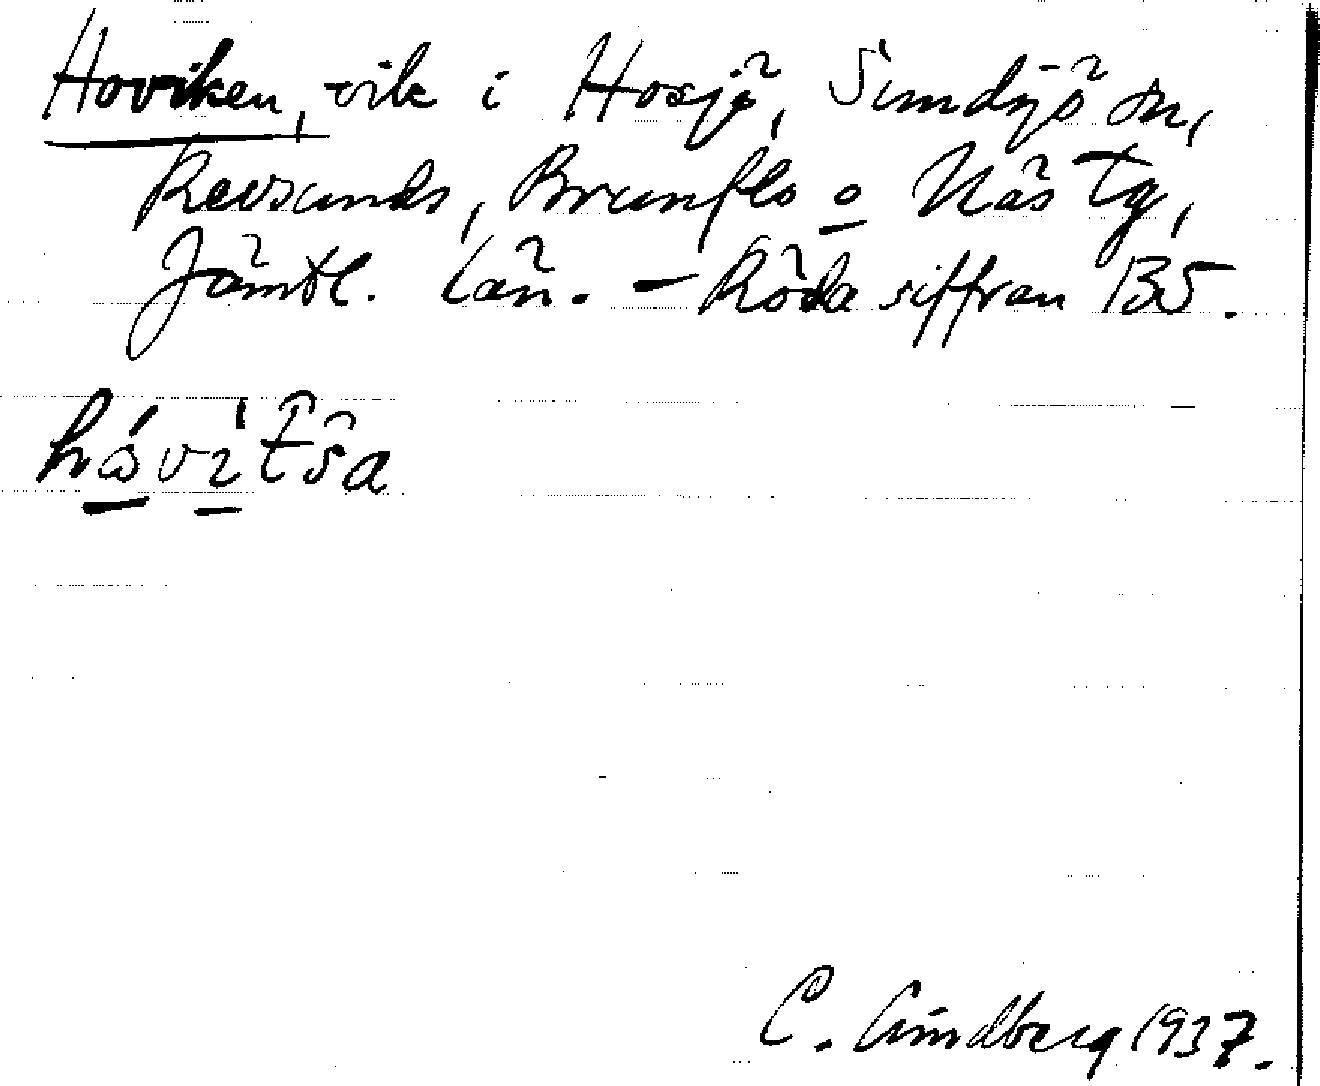 Hoviken, vik i Hosjö, Sundsjö sn,
Revsunds, Brunflo o Näs tg,
Jämtl. län. - Röda siffran 135.
C. Lindberg 1937.